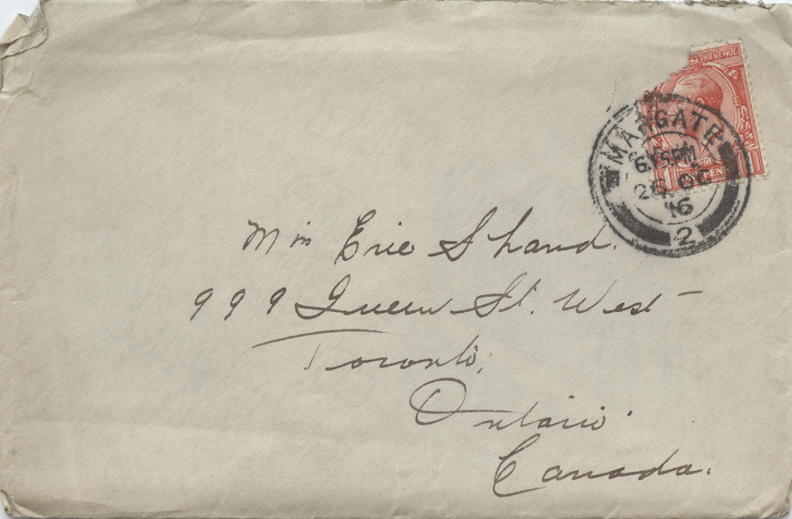 REVENUE
MARGATE
6.15PM
26 OC
16
2
Miss Evie Shand.
999 Queen St. West
Toronto,
Ontario.
Canada.